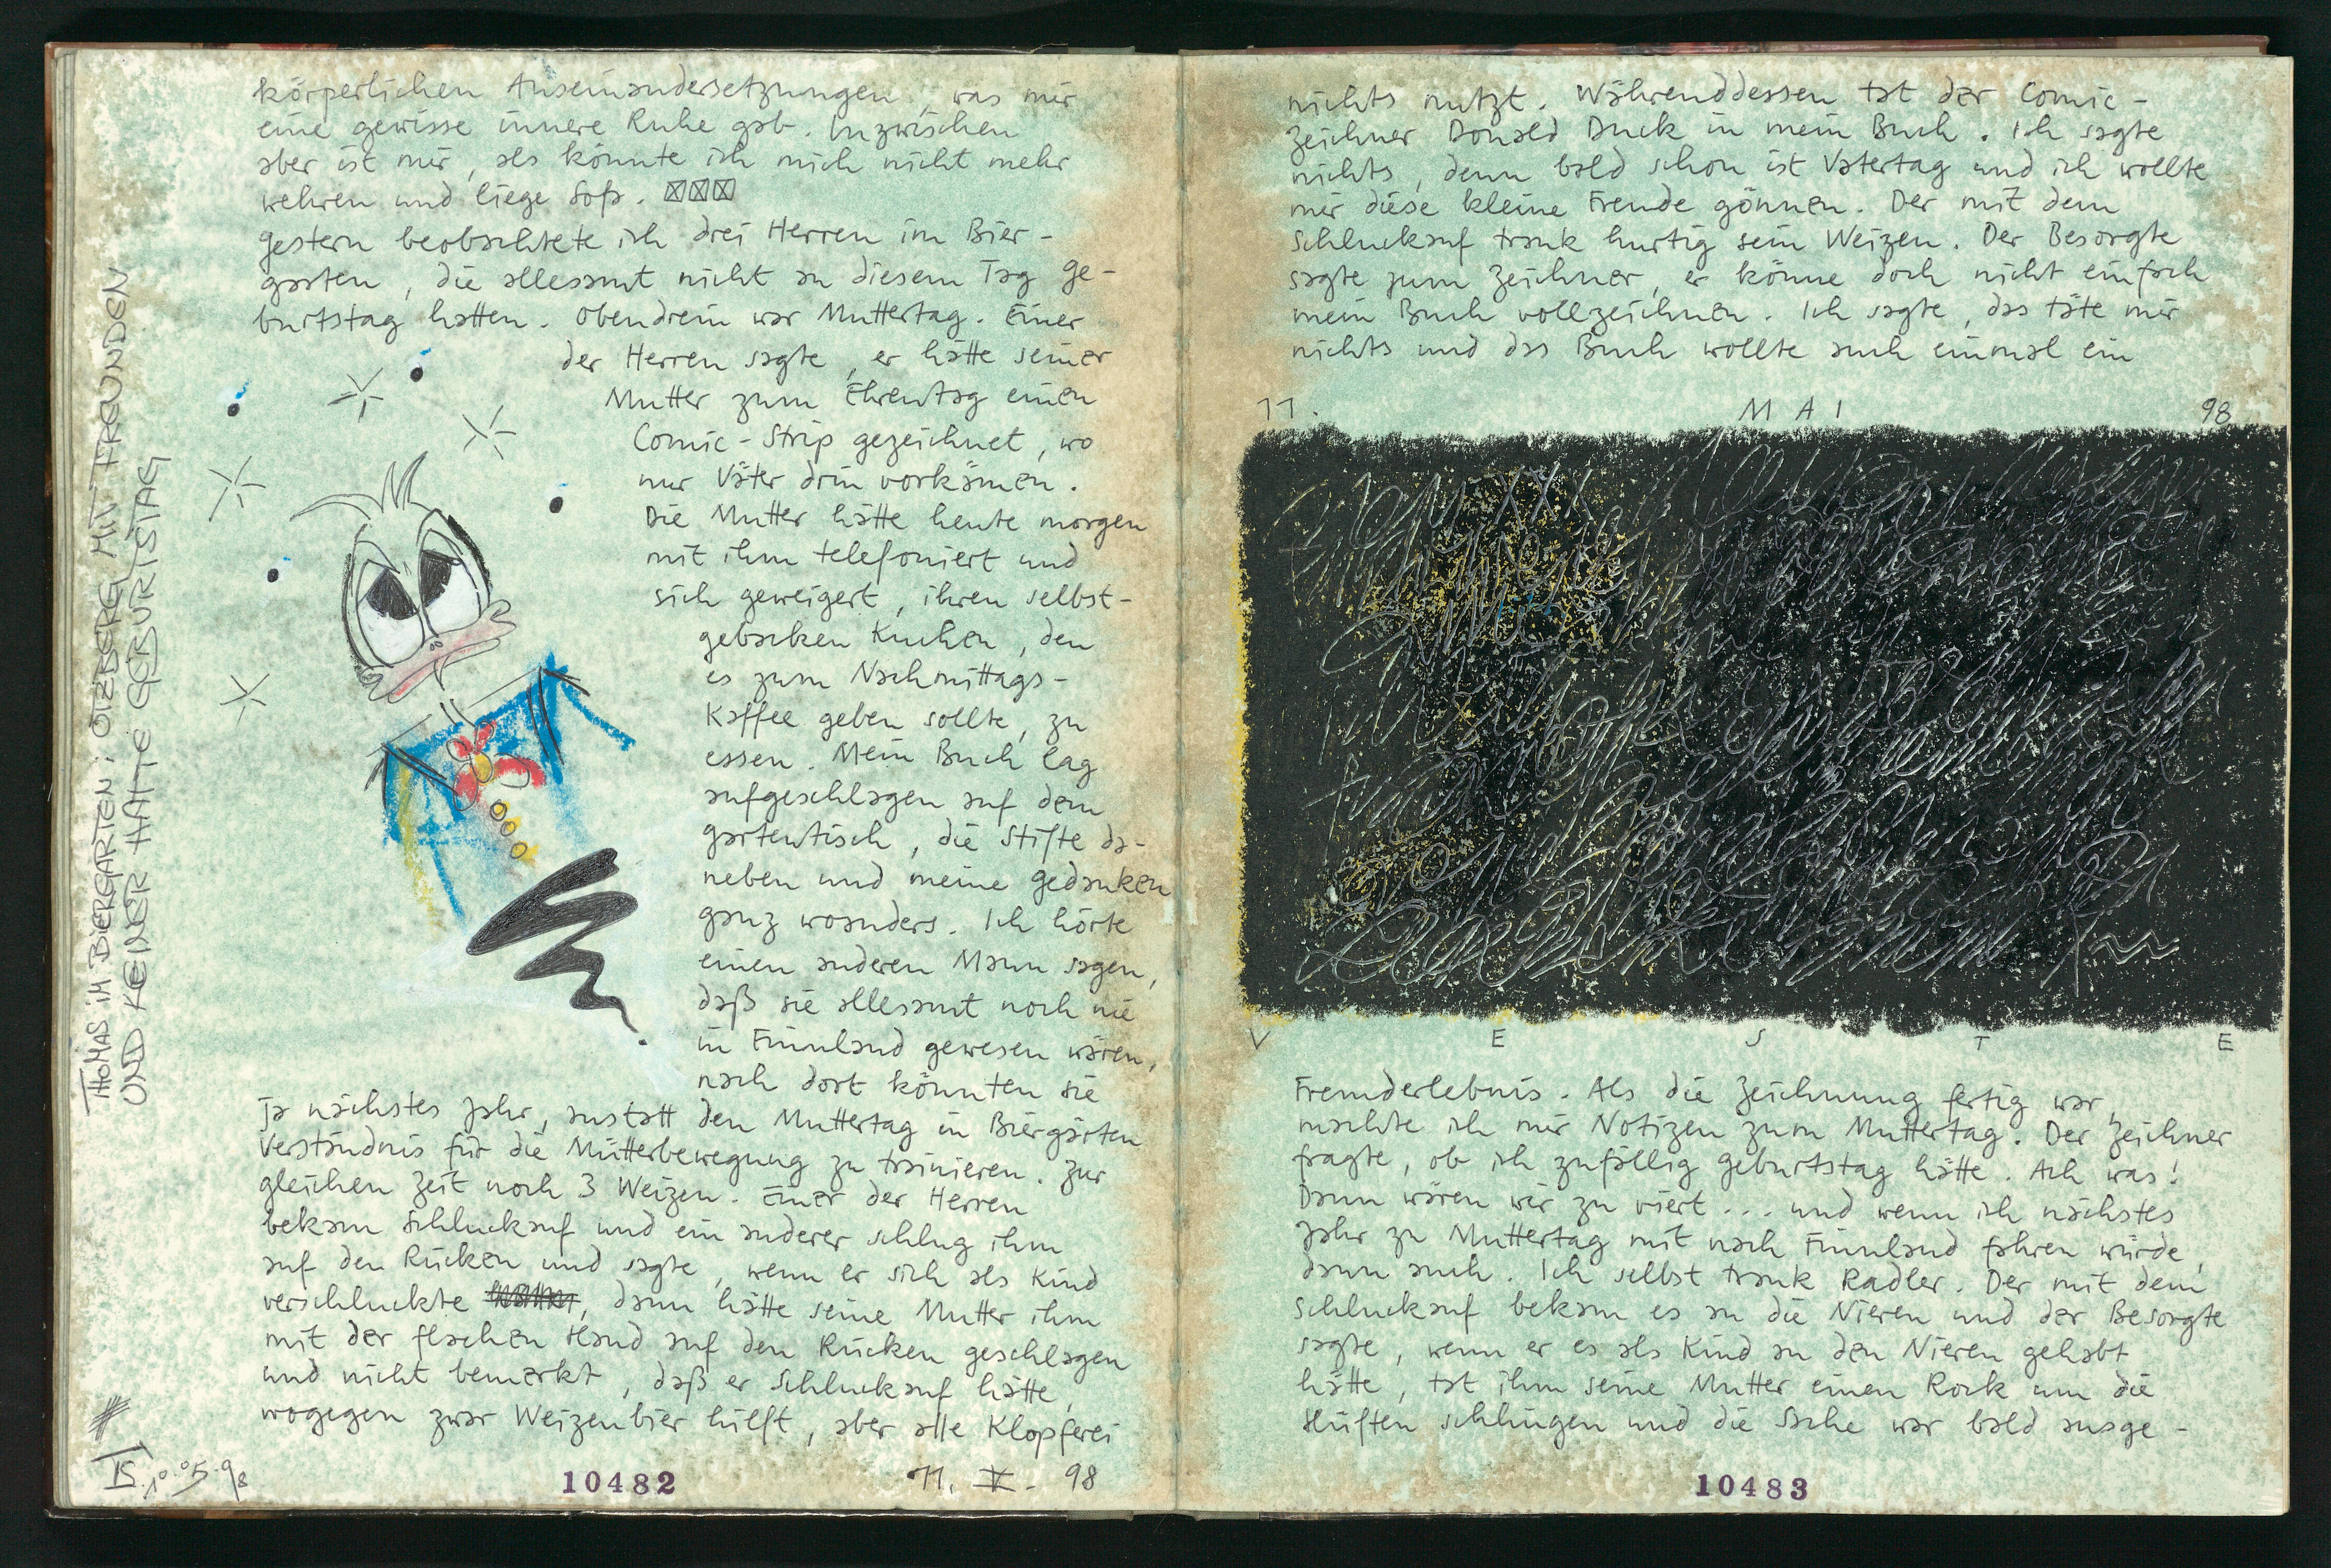 körperlichen Auseinandersetzungen, was mir
eine gewisse innere Ruhe gab. Inzwischen
aber ist mir, als könnte ich mich nicht mehr
wehren und liege
gestern beobachtete ich drei Herren im Bier-
garten, die allesamt nicht an diesem Tag Ge-
burtstag hatten. Obendrein war Muttertag. Einer
der Herren sagte, er hätte seiner
Mutter zum Ehrentag einen
Comic-Strip gezeichnet, wo
nur Väter drin vorkämen.
Die Mutter hätte heute morgen
mit ihm telefoniert und
sich geweigert, ihren selbst-
gebacken Kuchen, den
es zum Nachmittags-
Kaffee geben sollte, zu
essen. Mein Buch lag
aufgeschlagen auf dem
Gartentisch, die Stifte da-
neben und meine Gedanken
ganz woanders. Ich hörte
einen anderen Mann sagen,
daß sie allesamt noch nie
in Finnland gewesen wären,
nach dort könnten sie
ja nächstes Jahr, anstatt den Muttertag in Biergärten
Verständnis für die Mütterbewegung zu trainieren. Zur
gleichen Zeit noch 3 Weizen. Einer der Herren
bekam Schluckauf und ein anderer schlug ihm
auf den Rücken und sagte, wenn er sich als Kind
verschluckte, dann hätte seine Mutter ihm
mit der flachen Hand auf den Rücken geschlagen
und nicht bemerkt, daß er Schluckauf hätte,
wogegen zwar Weizenbier hilft, aber alle Klopferei
THOMAS IM BIERGARTEN: OTZBERG MIT FREUNDEN
UND KEINER HATTE GEBURTSTAG
TS. 10.05.98
10482
11. V. 98
nichts nutzt. Währenddessen tat der Comic-
zeichner Donald Duck in mein Buch. Ich sagte
nichts, denn bald schon ist Vatertag und ich wollte
mir diese kleine Freude gönnen. Der mit dem
Schluckauf trank hurtig sein Weizen. Der Besorgte
sagte zum Zeichner, er könne doch nicht einfach
mein Buch vollzeichnen. Ich sagte, das täte mir
nichts und das Buch wollte auch einmal ein
11. MAI 98
V E S T E
Fremderlebnis. Als die Zeichnung fertig war,
machte ich mir Notizen zum Muttertag. Der Zeichner
fragte, ob ich zufällig Geburtstag hätte. Ach was!
Dann wären wir zu viert... und wenn ich nächstes
Jahr zu Muttertag mit nach Finnland fahren würde,
dann auch. Ich selbst trank Radler. Der mit dem
Schluckauf bekam es an die Nieren und der Besorgte
sagte, wenn er es als Kind an den Nieren gehabt
hätte, tat ihm seine Mutter einen Rock um die
Hüften schlingen und die Sache war bald ausge-
10483